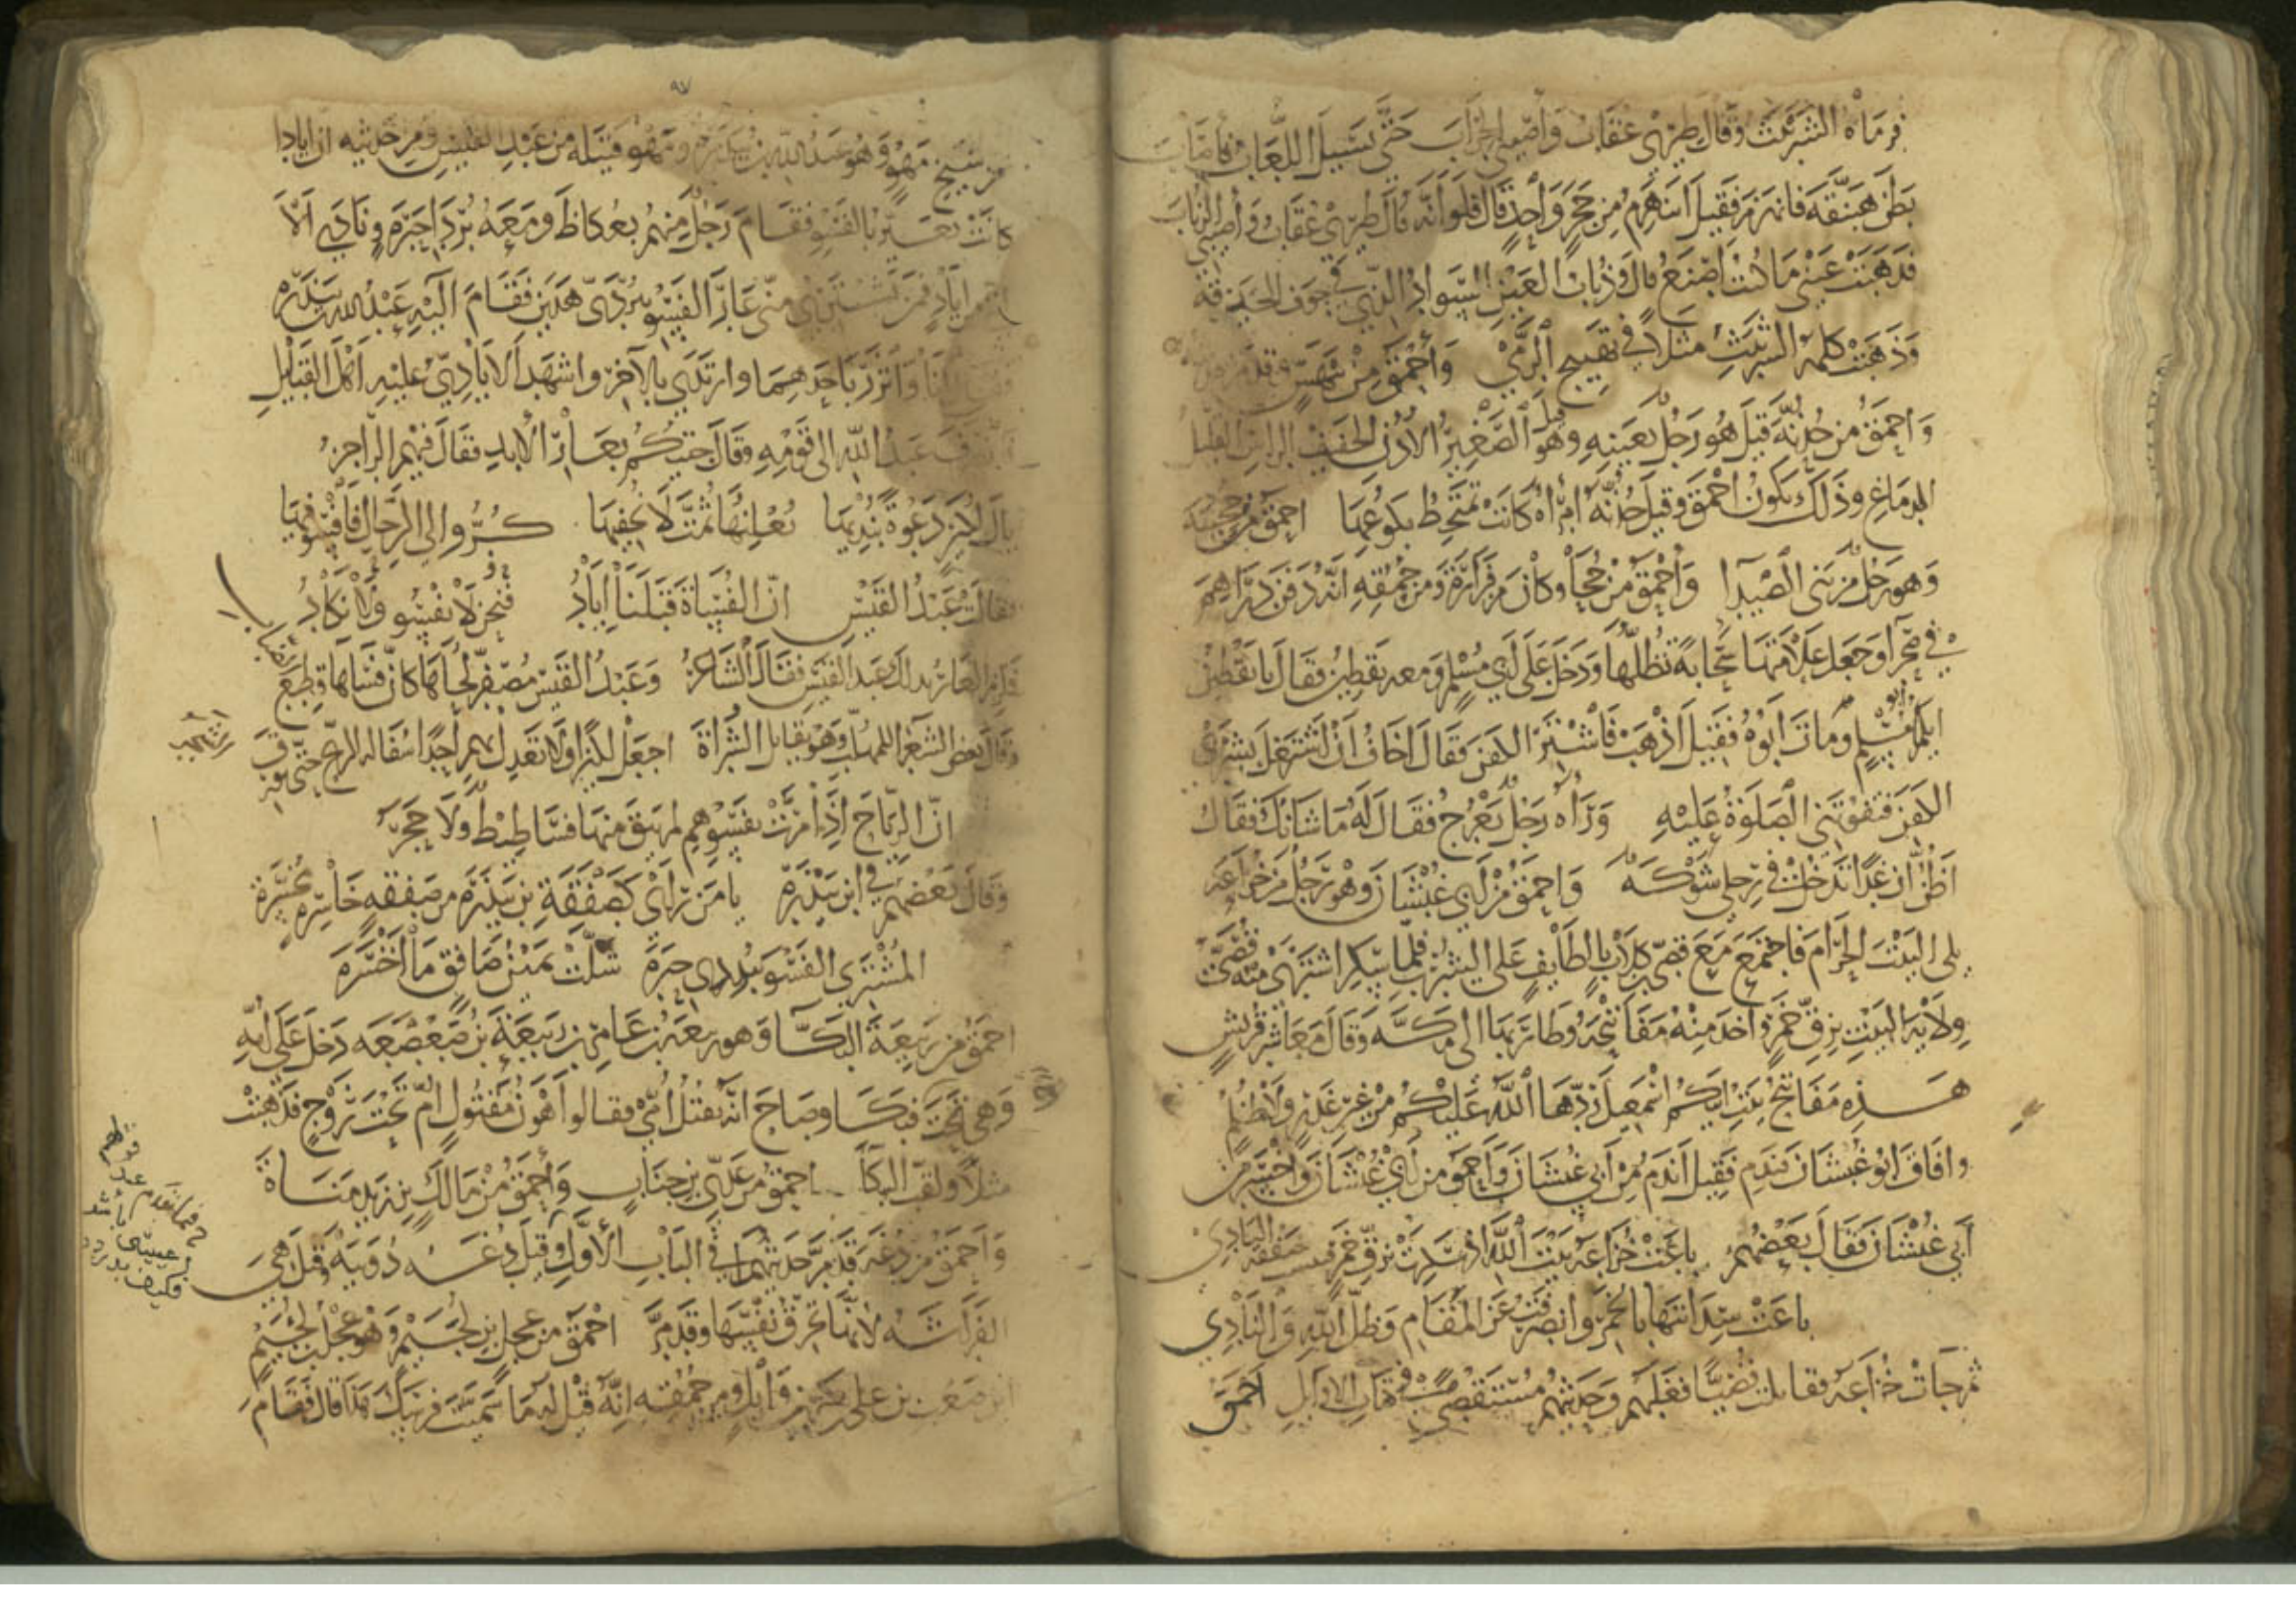 فرماه الشرنبث وقال طيري عقاب وأصيبي الجراب حتى يسيل اللعاب فأصاب
بطن هبنقة فانهزم فقيل له أتنهزم من حجر واحد قال فلو أنه قال طيري عقاب وأصيبي الذباب
فذهبت عيني ما كنت أصنع قال وذباب العين السواد الذي في جوف الحدقة
وذهبت كلمة الشرنبث مثلا في تهييج الرمي وأحمق من بيهس وقد مر
وأحمق من حذنة قيل هو رجل بعينه وقيل هو الصغير الأذن الخفيف الراس القليل
الدماغ وذلك يكون أحمق وقيل حذنة امرأة كانت تمتخط بكوعها أحمق من
وهو رجل من بني الصيدا وأحمق من جحا وكان من فزارة ومن حمقه أنه دفن دراهم
في صحرا وجعل علامتها سحابة تظلها ودخل على أبي مسلم ومعه يقطين فقال يا يقطين
أيكما أبو مسلم ومات أبوه فقيل اذهب فاشتر الكفن فقال أخاف أن أشتغل بشرى
الكفن فتفوتني الصلوة عليه ورآه رجل يعرج فقال له ما شأنك فقال
أظن أن غدا تدخل في رجلي شوكة وأحمق من أبي غبشان وهو رجل من خزاعة
يلي البيت الحرام فاجتمع مع قصي بن كلاب بالطايف على الشرب فلما سكر اشترى منه قصي
ولاية البيت بزق خمر وأخذ منه مفاتيحه وطار بها إلى مكة وقال معاشر قريش
هذه مفاتيح بيت أبيكم اسمعيل ردها الله عليكم من غير غدر ولا ظلم
وأفاق أبو غبشان فندم فقيل أندم من أبي غبشان وأحمق من أبي غبشان وأخسر من
أبي غبشان فقال بعضهم باعت خزاعة بيت الله إذ سكرت بزق خمر فبئست صفقة البادي
باعت سدانتها بالخمر وانصرفت عن المقام وظل الله والنادي
ثم جات خزاعة فقاتلت قصيا فغلبهم وحديثهم مستقصى في كتاب الأوايل أحمق
٩٧
من شيخ مهو وهو عبد الله بن بيذرة ومهو قبيلة من عبد القيس ومن حديثه أن إيادا
كانت تعير بالفسو فقام رجل منهم بعكاظ ومعه بردا حبرة ونادى ألا
إني من إياد فمن يشتري مني عار الفسو ببردي هذين فقام إليه عبد الله بن بيذرة
فقال أنا واتزر بأحدهما وارتدى بالآخر وأشهد الإيادي عليه أهل القبايل
فانصرف عبد الله إلى قومه وقال جيتكم بعار الأبد فقال فيهم الراجز
يال لكيز دعوة نبديها نعلنها ثمت لا نخفيها كروا إلى الرحال فافسوا فيها
فقالت عبد القيس إن الفساة قبلنا إياد فنحن لا نفسو ولا نكاد
فلزم العار بذلك عبد القيس فقال الشاعر وعبد القيس مصفر لحاها كأن فساها قطع
وقال بعض الشعرا للمهلب وهو يقاتل الشراة اجعل لكيزا ولا تعدل بهم أحدا
إن الرياح إذا مرت بفسوهم لم يبق منها فساطيط ولا حجر
وقال بعضهم في ابن بيذرة يا من رأى كصفقة بن بيذرة من صفقة خاسرة مخسرة
المشتري الفسو ببردي حبرة شلت يمين صافق ما أخسره
أحمق من ربيعة البكا وهو ربيعة بن عامر بن ربيعة بن صعصعة دخل على أمه
وهي تحت فبكا وصاح أنه يقتل أمي فقالوا أهون مقتول أم تحت زوج فذهبت
مثلا ولقب البكا أحمق من عدي بن جناب وأحمق من مالك بن زيد مناة
وأحمق من دغة قد مر حديثهما في الباب الأول وقيل دغة دويبة وقيل هي
الفراشة لأنها تحرق نفسها وقد مر أحمق من عجل بن لجيم وهو عجل بن لجيم
ابن صعب بن علي بن بكر بن وايل ومن حمقه أنه قيل له ما سميت فرسك هذا قال فقام